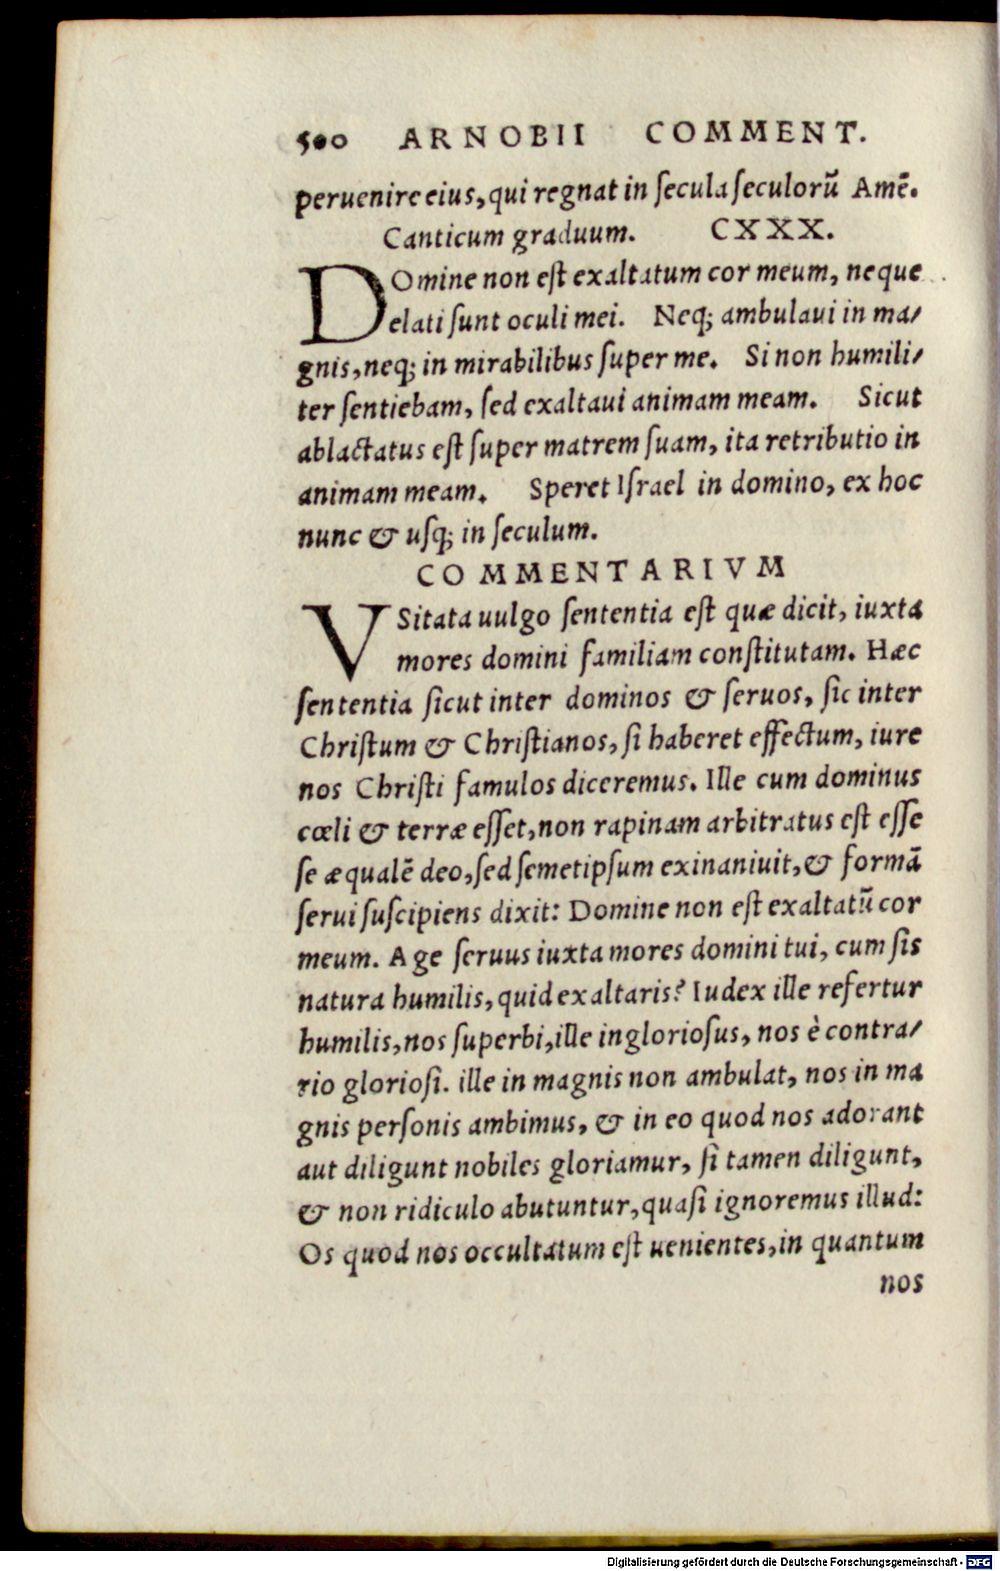 500 ARNOBII COMMENT.
peruenire eius, qui regnat in ſecula ſeculorū Amē.
Canticum graduum. CXXX.
DOmine non eſt exaltatum cor meum, neque
elati ſunt oculi mei. Neq; ambulaui in ma/
gnis, neq; in mirabilibus ſuper me. Si non humili/
ter ſentiebam, ſed exaltaui animam meam. Sicut
ablactatus eſt ſuper matrem ſuam, ita retributio in
animam meam. Speret Iſrael in domino, ex hoc
nunc & uſq; in ſeculum.
COMMENTARIVM
VSitata uulgo ſententia eſt quæ dicit, iuxta
mores domini familiam conſtitutam. Hæc
ſententia ſicut inter dominos & ſeruos, ſic inter
Chriſtum & Chriſtianos, ſi haberet effectum, iure
nos Chriſti famulos diceremus. Ille cum dominus
cœli & terræ eſſet, non rapinam arbitratus eſt eſſe
ſe æqualē deo, ſed ſemetipſum exinaniuit, & formā
ſerui ſuſcipiens dixit: Domine non eſt exaltatū cor
meum. Age ſeruus iuxta mores domini tui, cum ſis
natura humilis, quid exaltaris? Iudex ille refertur
humilis, nos ſuperbi, ille inglorioſus, nos è contra/
rio glorioſi. ille in magnis non ambulat, nos in ma
gnis perſonis ambimus, & in eo quod nos adorant
aut diligunt nobiles gloriamur, ſi tamen diligunt,
& non ridiculo abutuntur, quaſi ignoremus illud:
Os quod nos occultatum eſt uenientes, in quantum
nos
Digitalisierung gefördert durch die Deutsche Forschungsgemeinschaft - DFG